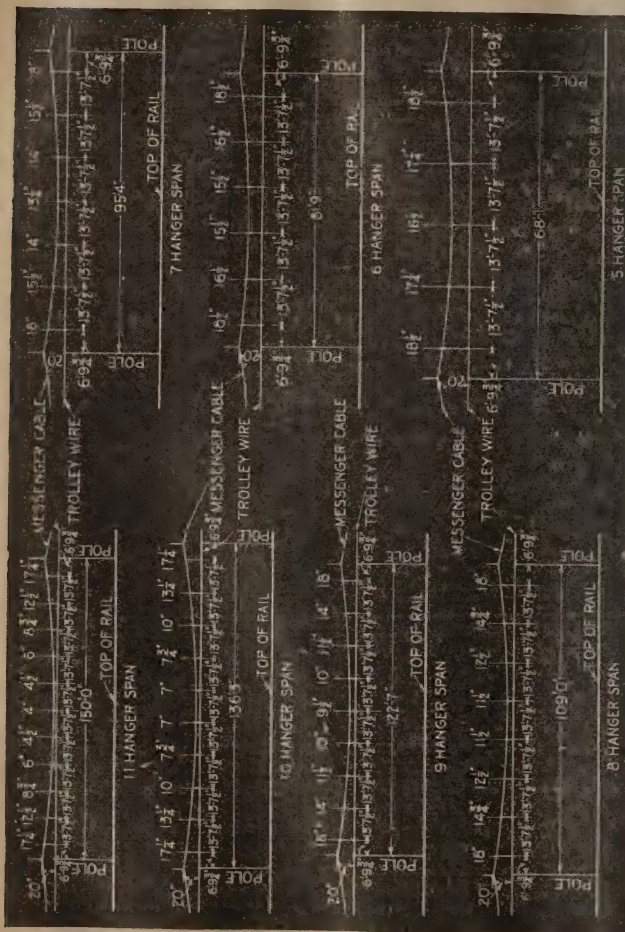 MESSENGER CABLE
17¼" 12½" 8¾" 6" 4½" 4" 4½" 6" 8¾" 12½" 17¼"
20"
TROLLEY WIRE
6'9¾" 13'7½" 13'7½" 13'7½" 13'7½" 13'7½" 13'7½" 13'7½" 13'7½" 13'7½" 13'7½" 6'9¾"
POLE 150'-0" POLE
TOP OF RAIL
11 HANGER SPAN
17¼" 13½" 10" 7¾" 7" 7" 7¾" 10" 13½" 17¼"
20"
MESSENGER CABLE
TROLLEY WIRE
6'9¾" 13'7½" 13'7½" 13'7½" 13'7½" 13'7½" 13'7½" 13'7½" 13'7½" 13'7½" 6'9¾"
POLE 136'3" POLE
TOP OF RAIL
10 HANGER SPAN
18" 14" 11½" 10" 9½" 10" 11½" 14" 18"
20"
MESSENGER CABLE
TROLLEY WIRE
6'9¾" 13'7½" 13'7½" 13'7½" 13'7½" 13'7½" 13'7½" 13'7½" 13'7½" 6'9¾"
POLE 122'-7" POLE
TOP OF RAIL
9 HANGER SPAN
MESSENGER CABLE
18" 14¾" 12½" 11½" 11½" 12½" 14¾" 18"
20"
TROLLEY WIRE
13'7½" 13'7½" 13'7½" 13'7½" 13'7½" 13'7½" 13'7½" 6'9¾"
POLE 109'0" POLE
TOP OF RAIL
8 HANGER SPAN
18" 15½" 14" 13½" 14" 15½" 18"
20"
6'9¾" 13'7½" 13'7½" 13'7½" 13'7½" 13'7½" 13'7½" 6'9¾"
POLE 95'4" POLE
TOP OF RAIL
7 HANGER SPAN
18½" 16½" 15½" 15½" 16½" 18½"
20"
6'9¾" 13'7½" 13'7½" 13'7½" 13'7½" 13'7½" 6'9¾"
POLE 81'9" POLE
TOP OF RAIL
6 HANGER SPAN
18½" 17¼" 16½" 17¼" 18½"
20"
6'9¾" 13'7½" 13'7½" 13'7½" 13'7½" 6'9¾"
POLE POLE
TOP OF RAIL
5 HANGER SPAN